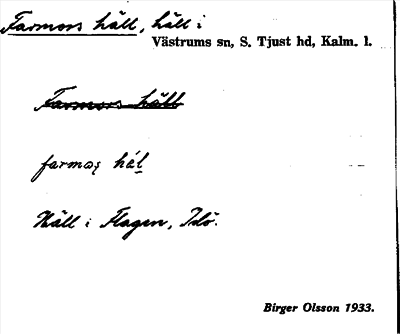 Farmors häll, häll i
Västrums sn, S. Tjust hd, Kalm. l.
Farmors häll
Häll i Flagen, Idö.
Birger Olsson 1933.